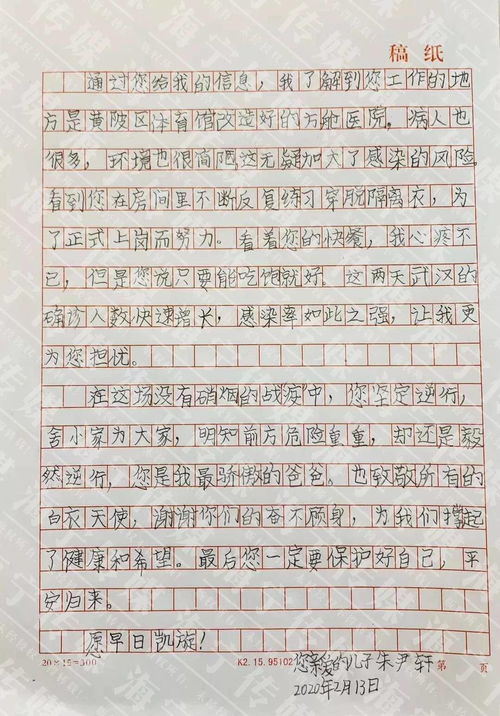 稿纸
通过您给我的信息，我了解到您工作的地
方是黄陂区体育馆改造好的方舱医院，病人也
很多，环境也很简陋这无疑加大了感染的风险。
看到您在房间里不断反复练习穿脱隔离衣，为
了正式上岗而努力。看着您的快餐，我心疼不
已，但是您说只要能吃饱就好。这两天武汉的
确诊人数快速增长，感染率如此之强，让我更
为您担忧。
在这场没有硝烟的战疫"中，您坚定逆行，
舍小家为大家，明知前方危险重重，却还是毅
然逆行，您是我最骄傲的爸爸。也致敬所有的
白衣天使，谢谢你们的奋不顾身，为我们撑起
了健康和希望。最后您一定要保护好自己，平
安归来。
愿早日凯旋！
20×15=300 K2.15.95102 第 页
您亲爱的儿子朱尹轩
2020年2月13日